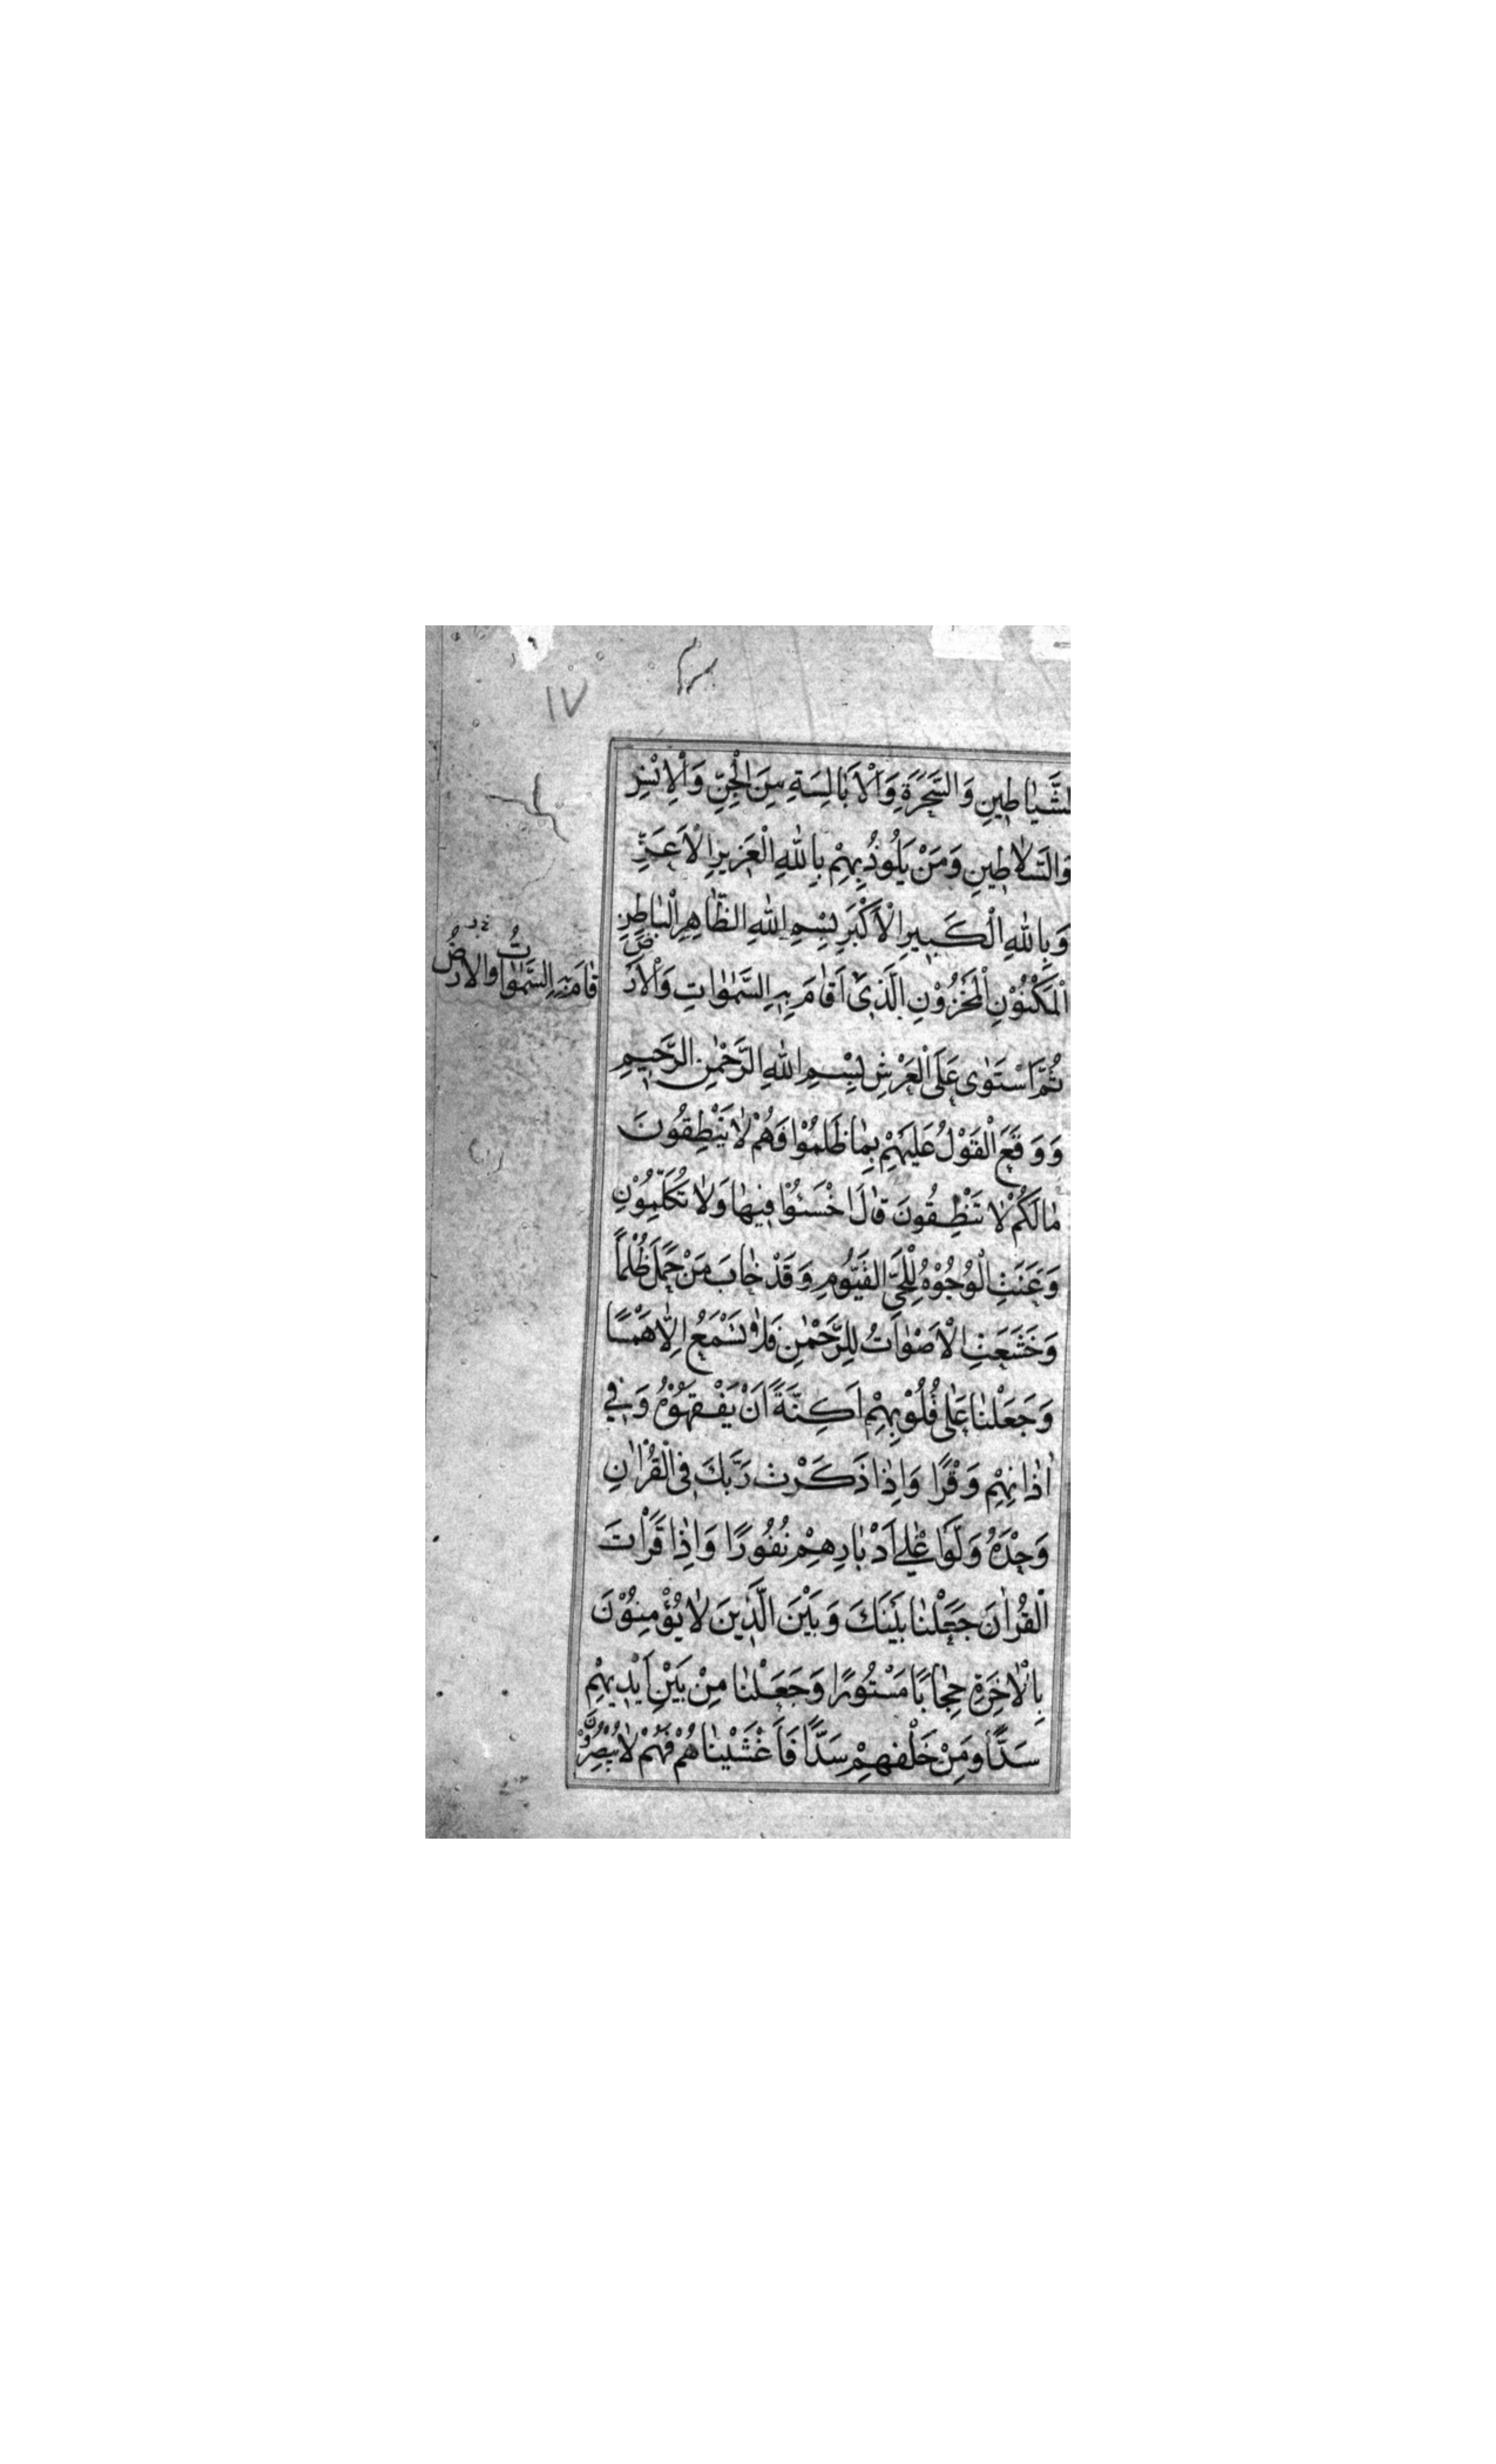 ١٧
الشَّيٰاطِينِ وَالسَّحَرَةِ وَالْاَبٰالِسَةِ مِنَ الْجِنِّ وَالْاِنْسِ
وَالسَّلٰاطِينِ وَمَنْ يَلُوذُ بِهِمْ بِاللّٰهِ الْعَزِيزِ الْاَعَزِّ
وَبِاللّٰهِ الْكَبِيرِ الْاَكْبَرِ بِسْمِ اللّٰهِ الظّٰاهِرِ الْبٰاطِنِ
الْمَكْنُوْنِ الْمَخْزُوْنِ الَّذِىْ اَقٰامَ بِهِ السَّمٰوٰاتِ وَالْاَرْضَ
قٰامَ بِهِ السَّمٰوٰاتُ وَالاَرْضُ
ثُمَّ اسْتَوٰى عَلَى الْعَرْشِ بِسْمِ اللّٰهِ الرَّحْمٰنِ الرَّحِيمِ
وَوَقَعَ الْقَوْلُ عَلَيْهِمْ بِمٰا ظَلَمُوْا فَهُمْ لٰا يَنْطِقُونَ
مٰا لَكُمْ لٰا تَنْطِقُونَ قٰالَ اخْسَئُوْا فِيهٰا وَلٰا تُكَلِّمُوْنِ
وَعَنَتِ الْوُجُوْهُ لِلْحَيِّ الْقَيُّومِ وَقَدْ خٰابَ مَنْ حَمَلَ ظُلْمًا
وَخَشَعَتِ الْاَصْوٰاتُ لِلرَّحْمٰنِ فَلٰا تَسْمَعُ اِلّٰا هَمْسًا
وَجَعَلْنٰا عَلٰى قُلُوْبِهِمْ اَكِنَّةً اَنْ يَفْقَهُوْهُ وَفِي
اٰذٰانِهِمْ وَقْرًا وَاِذٰا ذَكَرْتَ رَبَّكَ فِى الْقُرْاٰنِ
وَحْدَهُ وَلَّوْا عَلٰى اَدْبٰارِهِمْ نُفُورًا وَاِذٰا قَرَاْتَ
الْقُرْاٰنَ جَعَلْنٰا بَيْنَكَ وَبَيْنَ الَّذِينَ لٰا يُؤْمِنُوْنَ
بِالْاٰخِرَةِ حِجٰابًا مَسْتُورًا وَجَعَلْنٰا مِنْ بَيْنِ اَيْدِيهِمْ
سَدًّا وَمِنْ خَلْفِهِمْ سَدًّا فَاَغْشَيْنٰاهُمْ فَهُمْ لٰا يُبْصِرُوْنَ